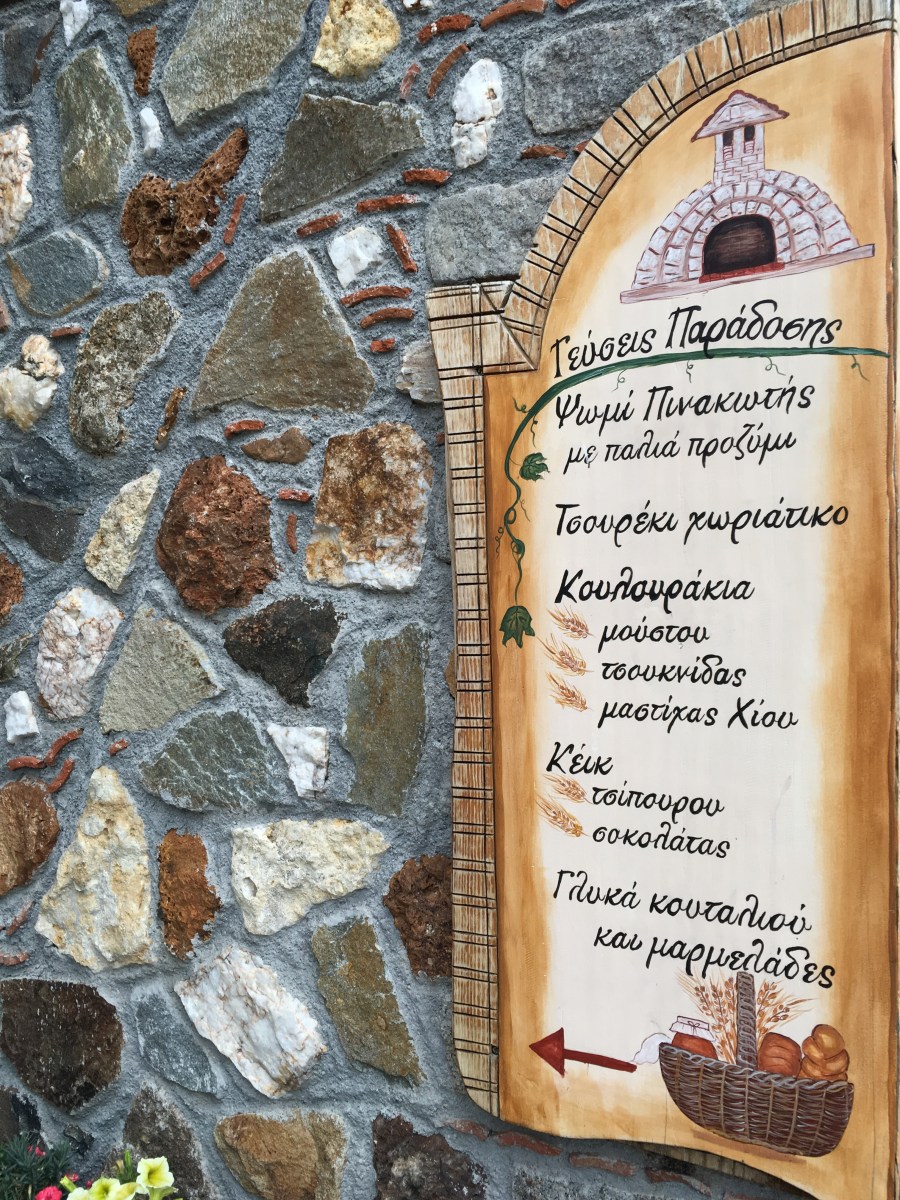 Γεύσεις Παράδοσης
Ψωμί Πινακωτής
με παλιά προζύμι
Τσουρέκι χωριάτικο
Κουλουράκια
μούστου
τσουκνίδας
μαστίχας Χίου
Κέικ
τσίπουρου
σοκολάτας
Γλυκά κουταλιού
και μαρμελάδες